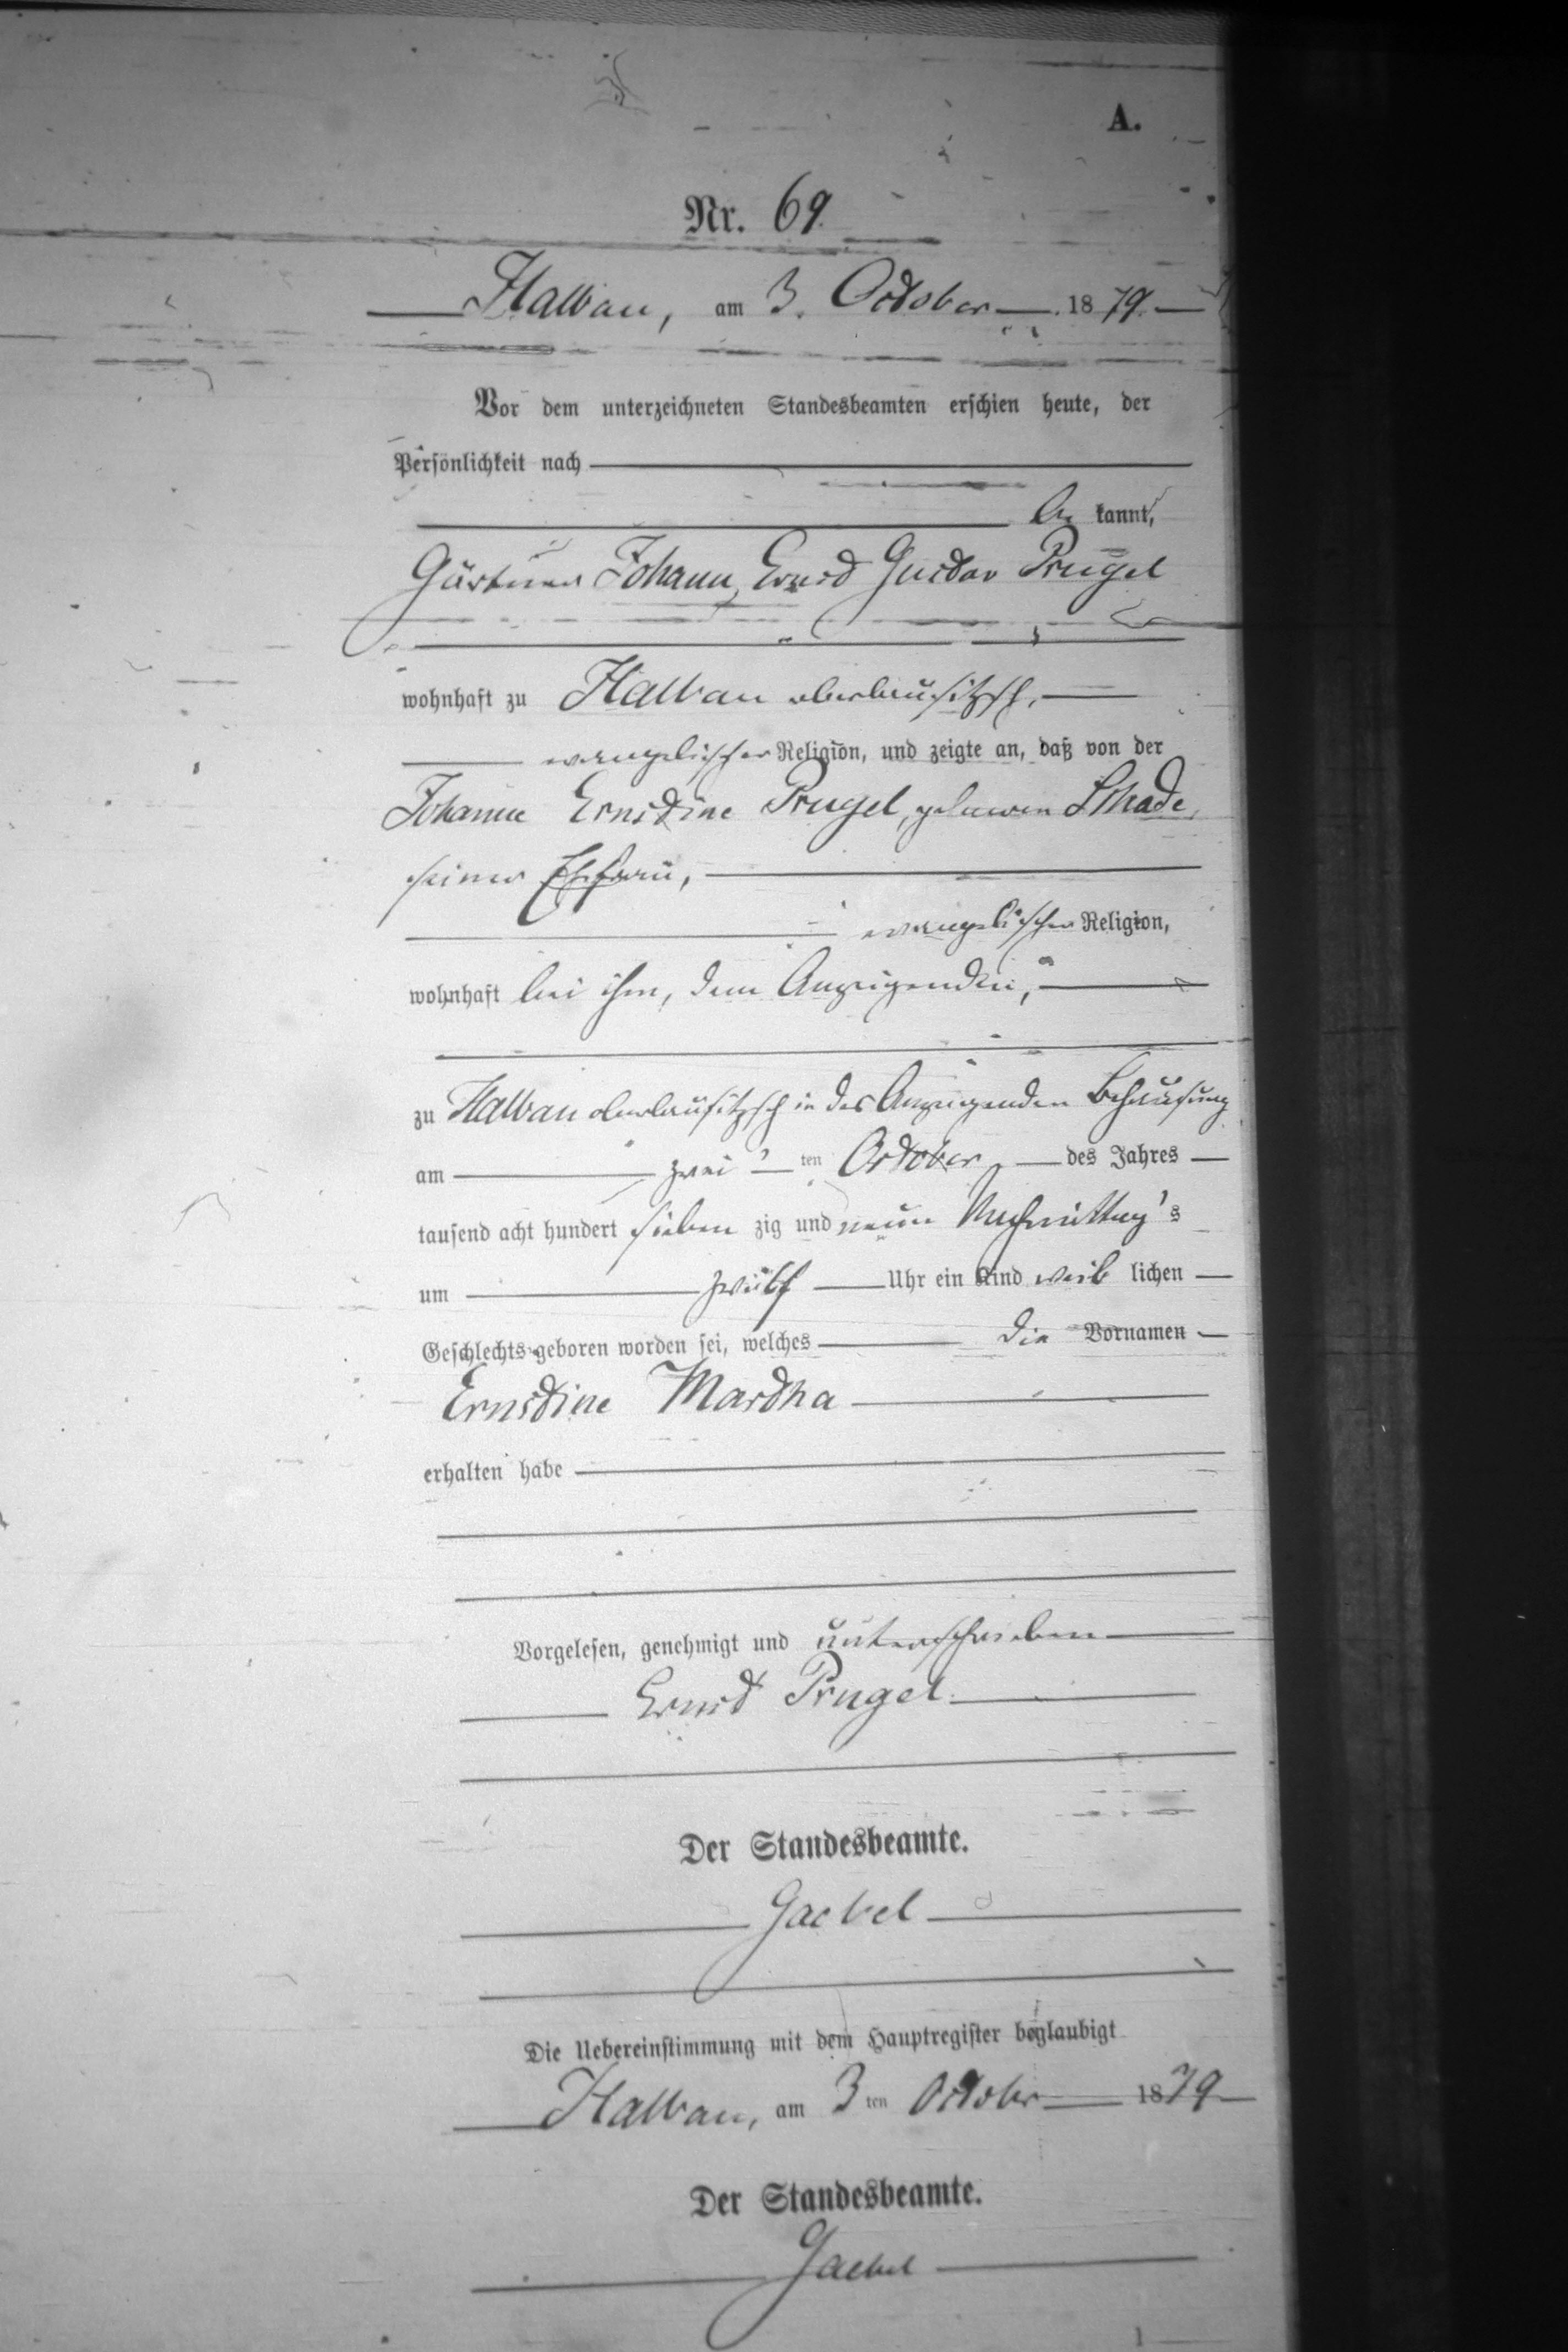 A.
Nr. 69.
Halbau, am 3. October 1879.
Vor dem unterzeichneten Standesbeamten erschien heute, der
Persönlichkeit nach
be kannt,
Gärtner Johann Ernst Gustav Prugel
wohnhaft zu Halbau oberlausitzsch,
evangelischer Religion, und zeigte an, daß von der
Johanne Ernestine Prugel, geborenen Schade,
seiner Ehefrau,
evangelischer Religion,
wohnhaft bei ihm, dem Anzeigenden,
zu Halbau oberlausitzsch in des Anzeigenden Behausung
am zwei ten October des Jahres
tausend acht hundert sieben zig und neun Nachmittag's
um zwölf Uhr ein Kind weib lichen
Geschlechts geboren worden sei, welches die Vornamen
Ernstine Martha
erhalten habe
Vorgelesen, genehmigt und unterschrieben
Ernst Prugel.
Der Standesbeamte.
Gaebel
Die Uebereinstimmung mit dem Hauptregister beglaubigt
Halbau, am 3 ten October 1879
Der Standesbeamte.
Gaebel